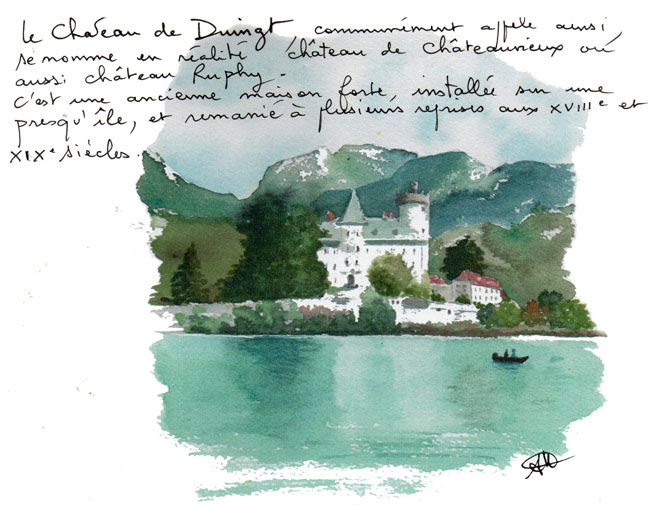 Le Château de Duingt communément appelé ainsi,
se nomme en réalité château de Châteauvieux ou
aussi château Ruphy.
C'est une ancienne maison forte, installée sur une
presqu'île, et remanié à plusieurs reprises aux XVIIIe et
XIXe siècles.